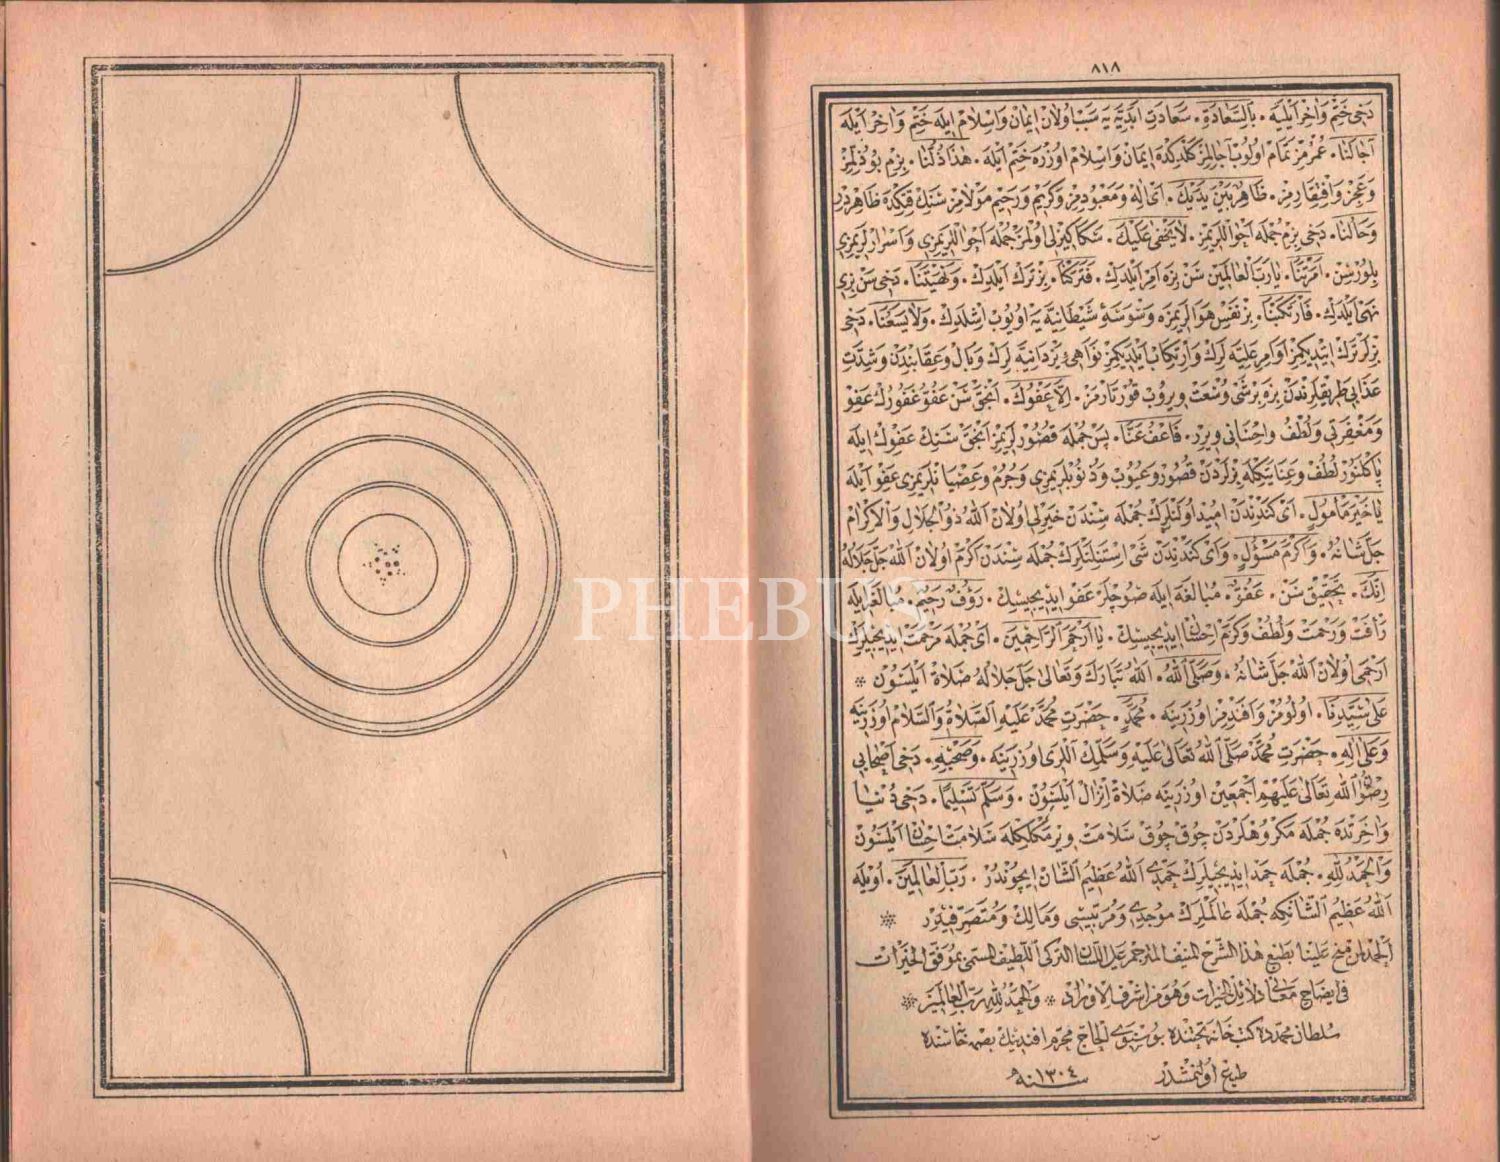 ٨١٨
دَخى خَتْم وَاٰخِر اَيْلِيَه . بِالسَّعَادَةِ . سَعَادَتِ اَبَدِيَّه يَه سَبَب اُولَانْ اِيمَانْ وَاِسْلَامْ اِيلَه خَتْم وَاٰخِر اَيْلَه
اٰجَالَنَا . عُمْرُمِزْ تَمَامْ اُولُوبْ اٰجَالِمِزْ كَلْدِكْدَه اِيمَانْ وَاِسْلَامْ اُوزْرَه خَتْم اَيْلَه . هٰذَا ذُلُّنَا . بِزِمْ بُو ذُلِّمِزْ
وَعَجْز وَافْتِقَارِمِزْ . ظَاهِرٌ بَيْنَ يَدَيْكَ . اَىْ اِلٰه وَمَعْبُودِمِزْ وَكَرِيمْ وَرَحِيمْ مَوْلَامِزْ سَنِكْ قَتِكْدَه ظَاهِرْدِرْ
وَحَالُنَا . دَخى بِزِمْ جُمْلَه اَحْوَاللَرِيمِزْ . لَا يَخْفٰى عَلَيْكَ . سَكَا كِيزْلى اُولْمَزْ جُمْلَه اَحْوَاللَرِيمِزى وَاَسْرَارْلَرِيمِزى
بِلُورْسِنْ . اَمَرْتَنَا . يَا رَبَّ الْعَالَمِينَ سَنْ بِزَه اَمْر اَيْلَدِكْ . فَتَرَكْنَا . بِزْ تَرْك اَيْلَدِكْ . وَنَهَيْتَنَا . دَخى سَنْ بِزى
نَهْى اَيْلَدِكْ . فَارْتَكَبْنَا . بِزْ نَفْسِ هَوَالَرِيمِزَه وَسْوَسَۀ شَيْطَانِيَّه يَه اُويُوبْ اِشْلَدِكْ . وَلَا يَسَعُنَا . دَخى
بِزْلَرْ تَرْك اِيتْدِيكِمِزْ اَوَامِرِ عَلِيَّه لَرِكْ وَارْتِكَابْ اَيْلَدِيكِمِزْ نَوَاهِىِ يَزْدَانِيَّه لَرِكْ وَبَالْ وَعِقَابِنْدَنْ وَشِدَّتِ
عَذَابى طَرِيقْلَرِنْدَنْ بِزَه بِرْ شَىْ وُسْعَتْ وِيرُوبْ قُورْتَارْمَزْ . اِلَّا عَفْوُكَ . اَنْجَقْ سَنْ عَفُوُّ غَفُورُكْ عَفْو
وَمَغْفِرَتى وَلُطْفُ وَاِحْسَانى وِيرِرْ . فَاعْفُ عَنَّا . پَسْ جُمْلَه قُصُورْلَرِيمِزْ اَنْجَقْ سَنِكْ عَفْوِكْ اِيلَه
پَاكْلَنُورْ لُطْفُ وَعِنَايَتِكْلَه بِزْلَرْدَنْ قُصُورْ وَعُيُوبْ وَذُنُوبْلَرِيمِزى وَجُرُمْ وَعِصْيَانْلَرِيمِزى عَفْو اَيْلَه
يَا خَيْرَ مَأْمُولٍ . اَىْ كَنْدِنْدَنْ اُمِيدْ اُولُنَنْلَرِكْ جُمْلَه سِنْدَنْ خَيْرلى اُولَانْ اللّٰهُ ذُو الْجَلَالِ وَالْاِكْرَامْ
جَلَّ شَانُهُ . وَاَكْرَمَ مَسْؤُلٍ . وَاَىْ كَنْدِنْدَنْ شَىْ اِسْتَنِلَنْلَرِكْ جُمْلَه سِنْدَنْ اَكْرَمْ اُولَانْ اللّٰهْ جَلَّ جَلَالُهُ
اِنَّكَ . تَحْقِيقْ سَنْ . عَفُوٌّ . مُبَالَغَه اِيلَه صُوچْلَرْ عَفْو اِيدِيجِيسِكْ . رَؤُفٌ رَحِيمٌ . مُبَالَغَه اِيلَه
رَأْفَتْ وَرَحْمَتْ وَلُطْفُ وَكَرَمْ اِحْسَانْ اِيدِيجِيسِكْ . يَا اَرْحَمَ الرَّاحِمِينَ . اَىْ جُمْلَه مَرْحَمَتْ اِيدِيجِيلَرِكْ
اَرْحَمى اُولَانْ اللّٰهْ جَلَّ شَانُهُ . وَصَلَّى اللّٰهُ . اللّٰهُ تَبَارَكَ وَتَعَالٰى جَلَّ جَلَالُهُ صَلَاةْ اَيْلَسُونْ *
عَلٰى سَيِّدِنَا . اُولُومُزْ وَاَفَنْدِمِزْ اُوزَرِينَه . مُحَمَّدٍ . حَضْرَتِ مُحَمَّدْ عَلَيْهِ الصَّلَاةُ وَالسَّلَامْ اُوزَرِينَه
وَعَلٰى اٰلِهِ . حَضْرَتِ مُحَمَّدْ صَلَّى اللّٰهُ تَعَالٰى عَلَيْهِ وَسَلَّمِكْ اٰلْلَرى اُوزَرِينَه . وَصَحْبِهِ . دَخى اَصْحَابى
رِضْوَانُ اللّٰهِ تَعَالٰى عَلَيْهِمْ اَجْمَعِينْ اُوزَرِينَه صَلَاةْ اِنْزَالْ اَيْلَسُونْ . وَسَلَّمَ تَسْلِيمًا . دَخى دُنْيَا
وَاٰخِرَتْدَه جُمْلَه مَكْرُوهْلَرْدَنْ چُوقْ چُوقْ سَلَامَتْ وِيرْمَكْلِكْلَه سَلَامَتْ اِحْسَانْ اَيْلَسُونْ
وَالْحَمْدُ لِلّٰهِ . جُمْلَه حَمْد اِيدِيجِيلَرِكْ حَمْدى اللّٰهُ عَظِيمُ الشَّانْ اِيچُونْدُرْ . رَبِّ الْعَالَمِينَ . اُويْلَه
اللّٰهُ عَظِيمُ الشَّانْكِه جُمْلَه عَالَمْلَرِكْ مُوجِدى وَمُرَبِّيسى وَمَالِكْ وَمُتَصَرِّفِيدِرْ *
اَلْحَمْدُ لِمَنْ مَنَحَ عَلَيْنَا بِطَبْعِ هٰذَا الشَّرْحِ الْمُنِيفِ الْمُتَرْجَمِ عَلَى اللِّسَانِ التُّرْكِى اللَّطِيفِ الْمُسَمّٰى بِمُوَفَّقِ الْخَيْرَاتِ
فى اِيضَاحِ مَعَانى دَلَائِلِ الْخَيْرَاتِ وَهُوَ مِنْ اَشْرَفِ الْاَوْرَادِ * وَالْحَمْدُ لِلّٰهِ رَبِّ الْعَالَمِينَ *
سُلْطَانْ مُحَمَّدْدَه كُتُبْخَانَه تَحْتِنْدَه بُوسْنَوِى الْحَاجْ مُحَرَّمْ اَفَنْدِينِكْ بَصْمَه خَانَه سِنْدَه
طَبْع اُولُنْمِشْدُرْ سنه ١٣٠٤
PHEBUS